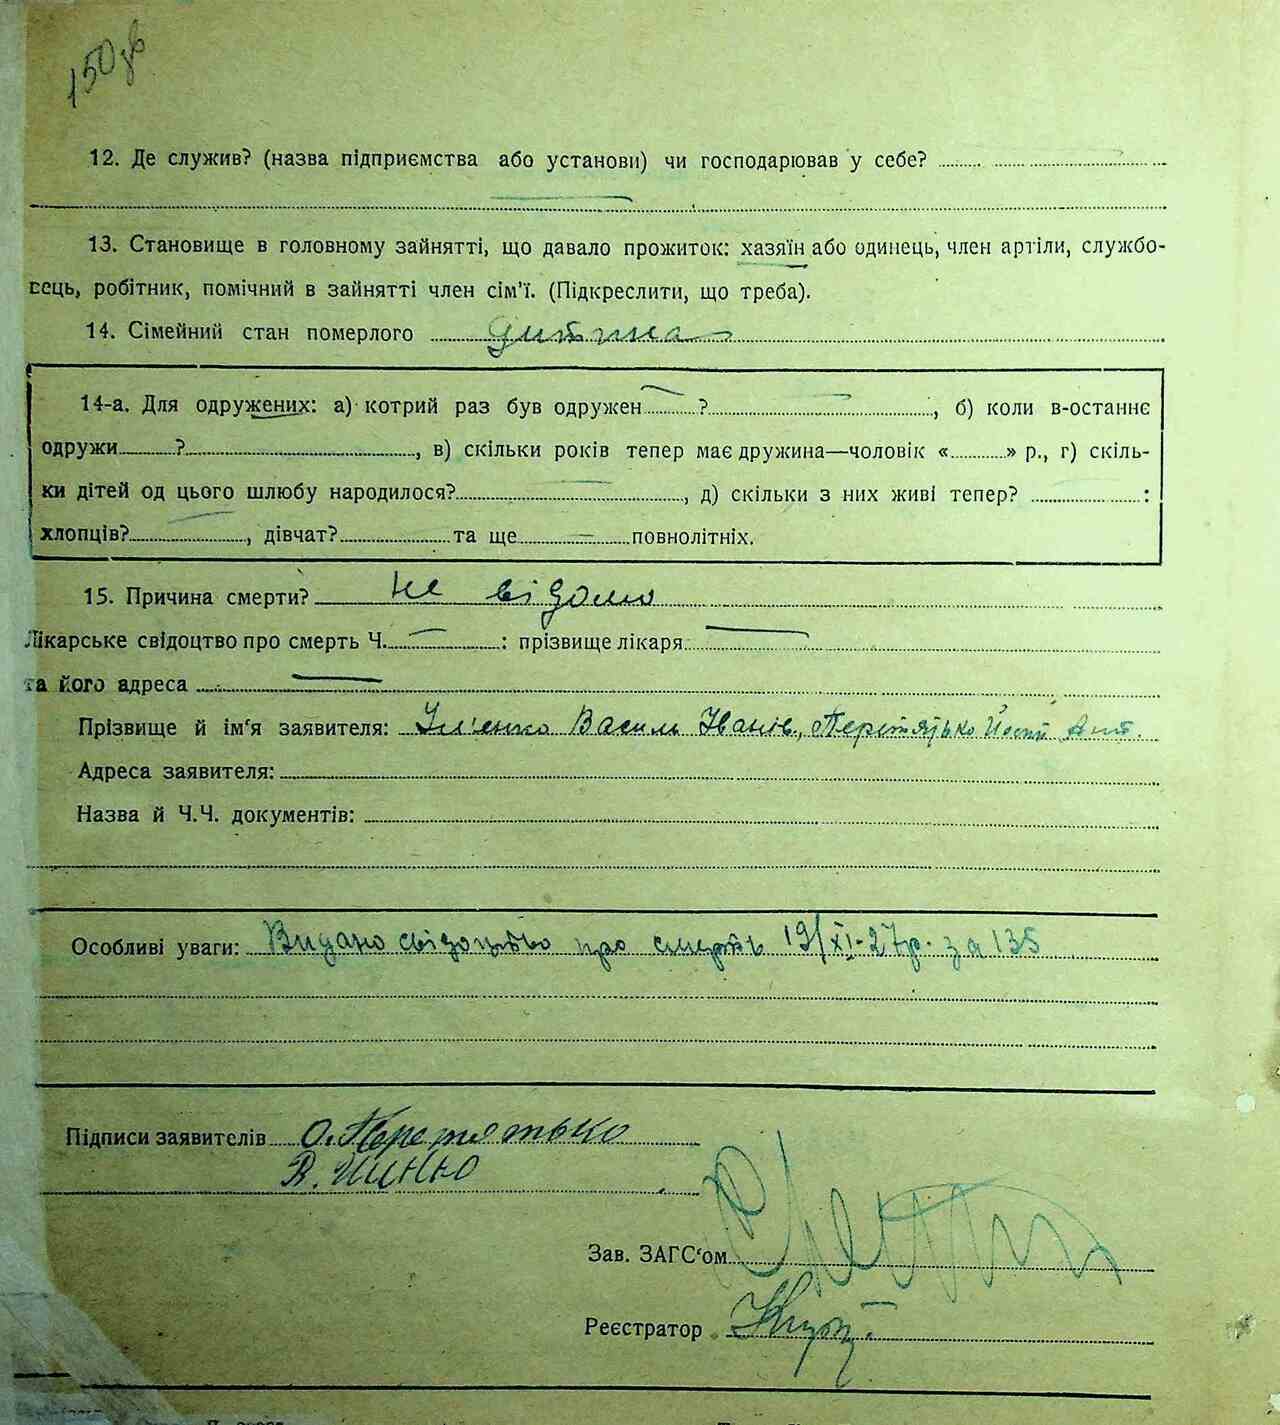 150 зв
12. Де служив? (назва підприємства або установи) чи господарював у себе?
13. Становище в головному зайнятті, що давало прожиток: хазяїн або одинець, член артіли, службо-
вець, робітник, помічний в зайнятті член сім'ї. (Підкреслити, що треба).
14. Сімейний стан померлого дитина
14-а. Для одружених: а) котрий раз був одружен ? , б) коли в-останнє
одружи ? , в) скільки років тепер має дружина—чоловік « » р., г) скіль-
ки дітей од цього шлюбу народилося? , д) скільки з них живі тепер? :
хлопців? , дівчат? та ще — повнолітніх.
15. Причина смерти? не відомо
Лікарське свідоцтво про смерть Ч. — : прізвище лікаря —
та його адреса —
Прізвище й ім'я заявителя: Василь Іванів, Перетятько Йосип Ант.
Адреса заявителя:
Назва й Ч.Ч. документів:
Особливі уваги: Видано свідоцтво про смерть 19/XI-27р. за 135
Підписи заявителів О. Перетятько
В.
Зав. ЗАГС'ом
Реєстратор